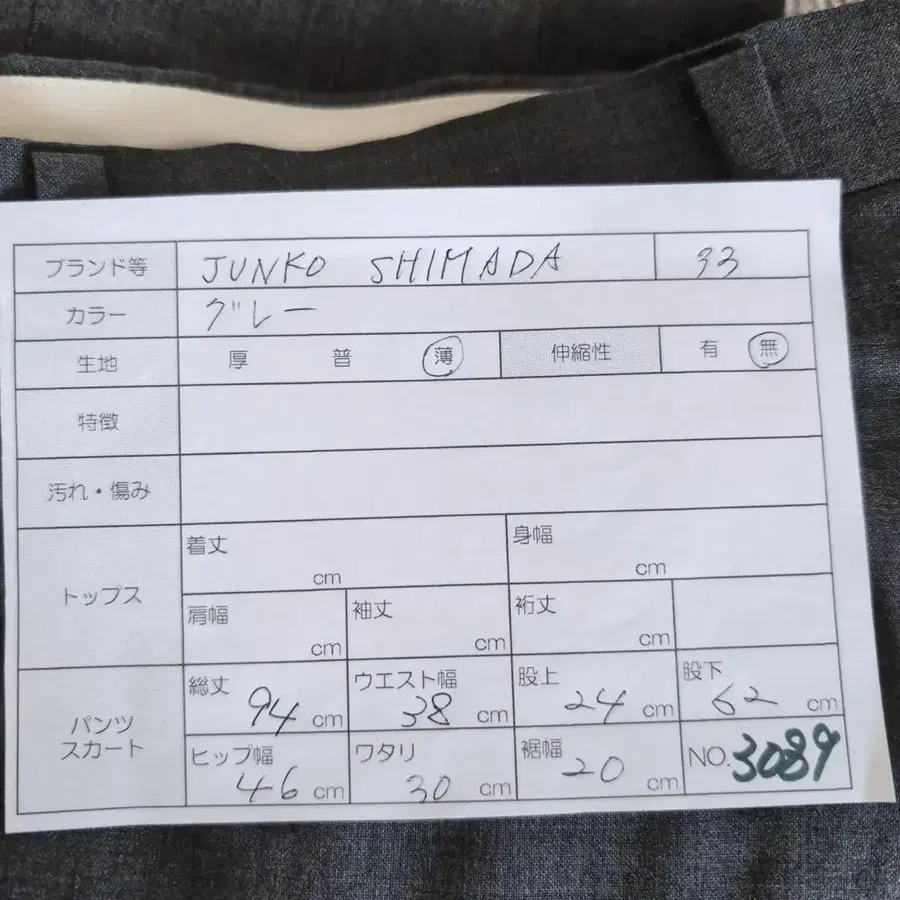 ブランド等 JUNKO SHIMADA 93
カラー グレー
生地 厚 普 薄 伸縮性 有 無
特徴
汚れ・傷み
トップス
着丈 cm 身幅 cm
肩幅 cm 袖丈 cm 裄丈 cm
パンツ
スカート
総丈 94 cm ウエスト幅 38 cm 股上 24 cm 股下 62 cm
ヒップ幅 46 cm ワタリ 30 cm 裾幅 20 cm NO. 3089